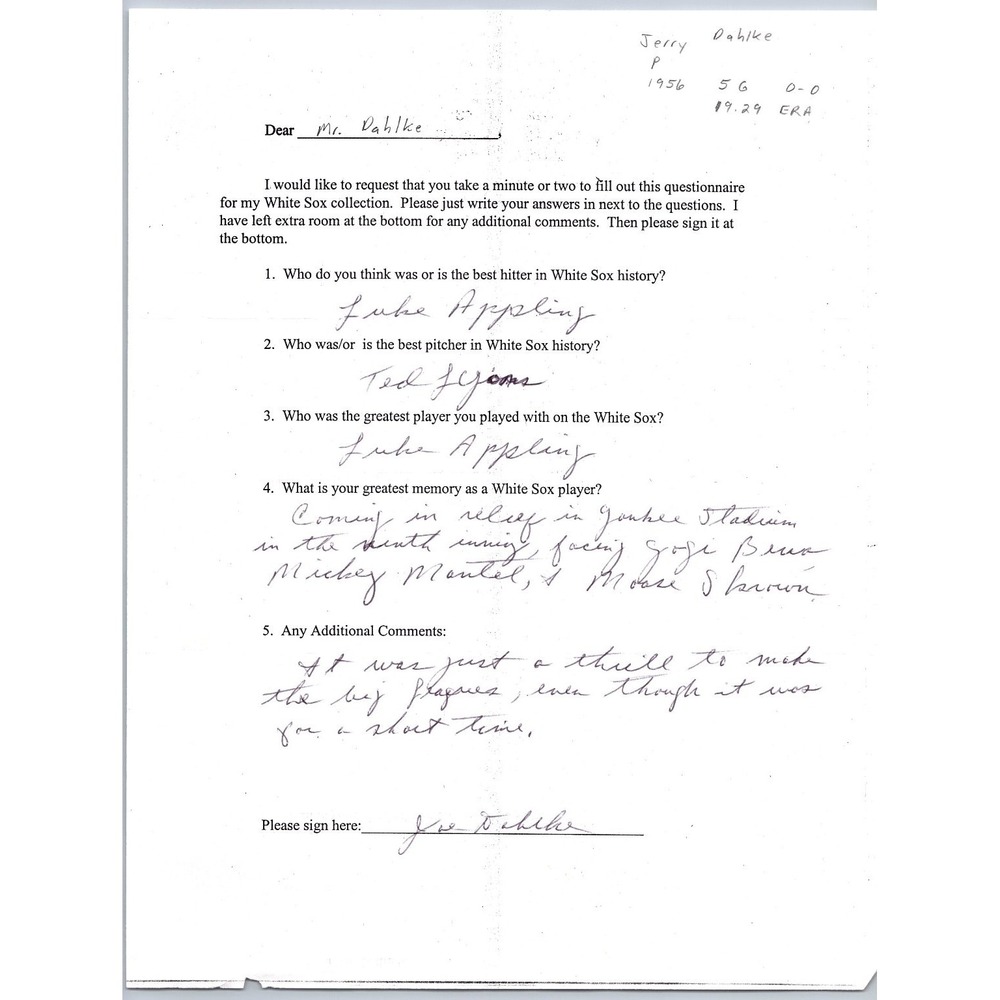 Jerry Dahlke
P
1956 5 G 0-0
19.29 ERA
Dear Mr. Dahlke,
I would like to request that you take a minute or two to fill out this questionnaire
for my White Sox collection. Please just write your answers in next to the questions. I
have left extra room at the bottom for any additional comments. Then please sign it at
the bottom.
1. Who do you think was or is the best hitter in White Sox history?
Luke Appling
2. Who was/or is the best pitcher in White Sox history?
Ted Lyons
3. Who was the greatest player you played with on the White Sox?
Luke Appling
4. What is your greatest memory as a White Sox player?
Coming in relief in Yankee Stadium
in the ninth inning, facing Yogi Berra
Mickey Mantel, & Moose Skowron
5. Any Additional Comments:
It was just a thrill to make
the big leagues, even though it was
for a short time.
Please sign here: Joe Dahlke